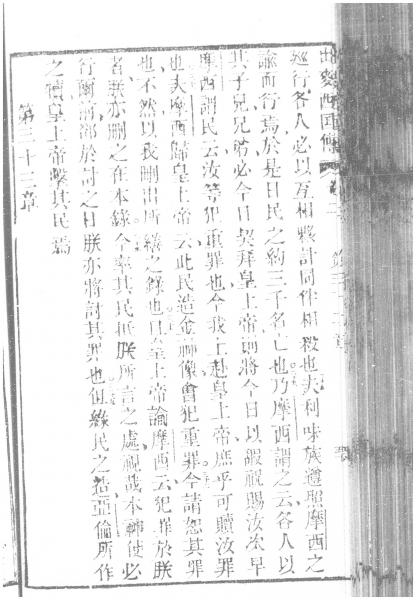 出麥西國傳
巡行各人必以互相夥計同伴相殺也夫利味族遵照摩西之
諭而行焉於是日民之約三千名亡也乃摩西謂之云各人以
其子兄兄皆必今日契拜皇上帝則將今日以嘏祝賜汝次早
摩西謂民云汝等犯重罪也今我上赴皇上帝庶乎可贖汝罪
也夫摩西歸皇上帝云此民造金神像曾犯重罪今請恕其罪
也不然以我刪出所繕之錄也曰皇上帝諭摩西云犯罪於朕
者朕亦刪之在本錄今率其民抵朕所言之處視哉本神使必
行爾前卻於討之日朕亦將討其罪也但緣民之 亞倫所作
之犢皇上帝擊其民焉
第三十三章